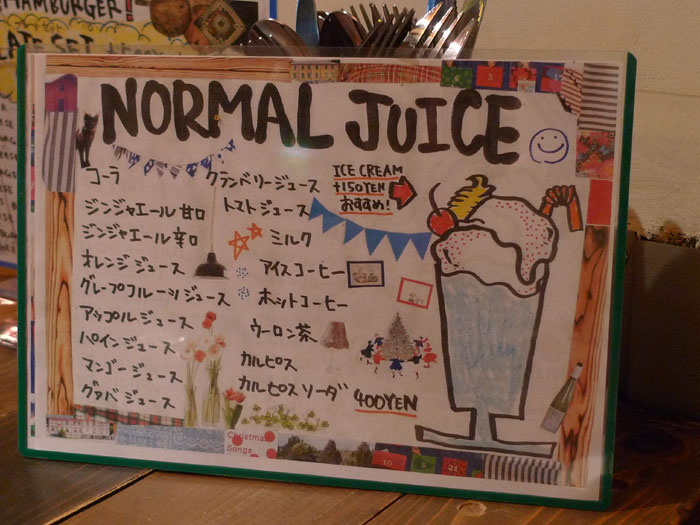 HAMBURGER!
NORMAL JUICE
コーラ
ジンジャエール 甘口
ジンジャエール 辛口
オレンジジュース
グレープフルーツジュース
アップルジュース
パインジュース
マンゴージュース
グァバジュース
クランベリージュース
トマトジュース
ミルク
アイスコーヒー
ホットコーヒー
ウーロン茶
カルピス
カルピスソーダ
400YEN
ICE CREAM
+150YEN
おすすめ!
Christmas
Songs
3
10
5
21